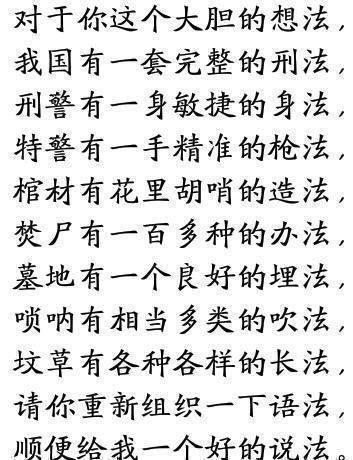 对于你这个大胆的想法，
我国有一套完整的刑法，
刑警有一身敏捷的身法，
特警有一手精准的枪法，
棺材有花里胡哨的造法，
焚尸有一百多种的办法，
墓地有一个良好的埋法，
唢呐有相当多类的吹法，
坟草有各种各样的长法，
请你重新组织一下语法，
顺便给我一个好的说法。